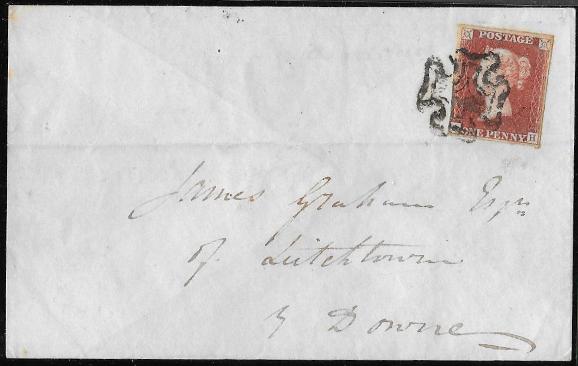 POSTAGE
ONE PENNY H
James Graham Esqr
of Leitchtown
by Doune